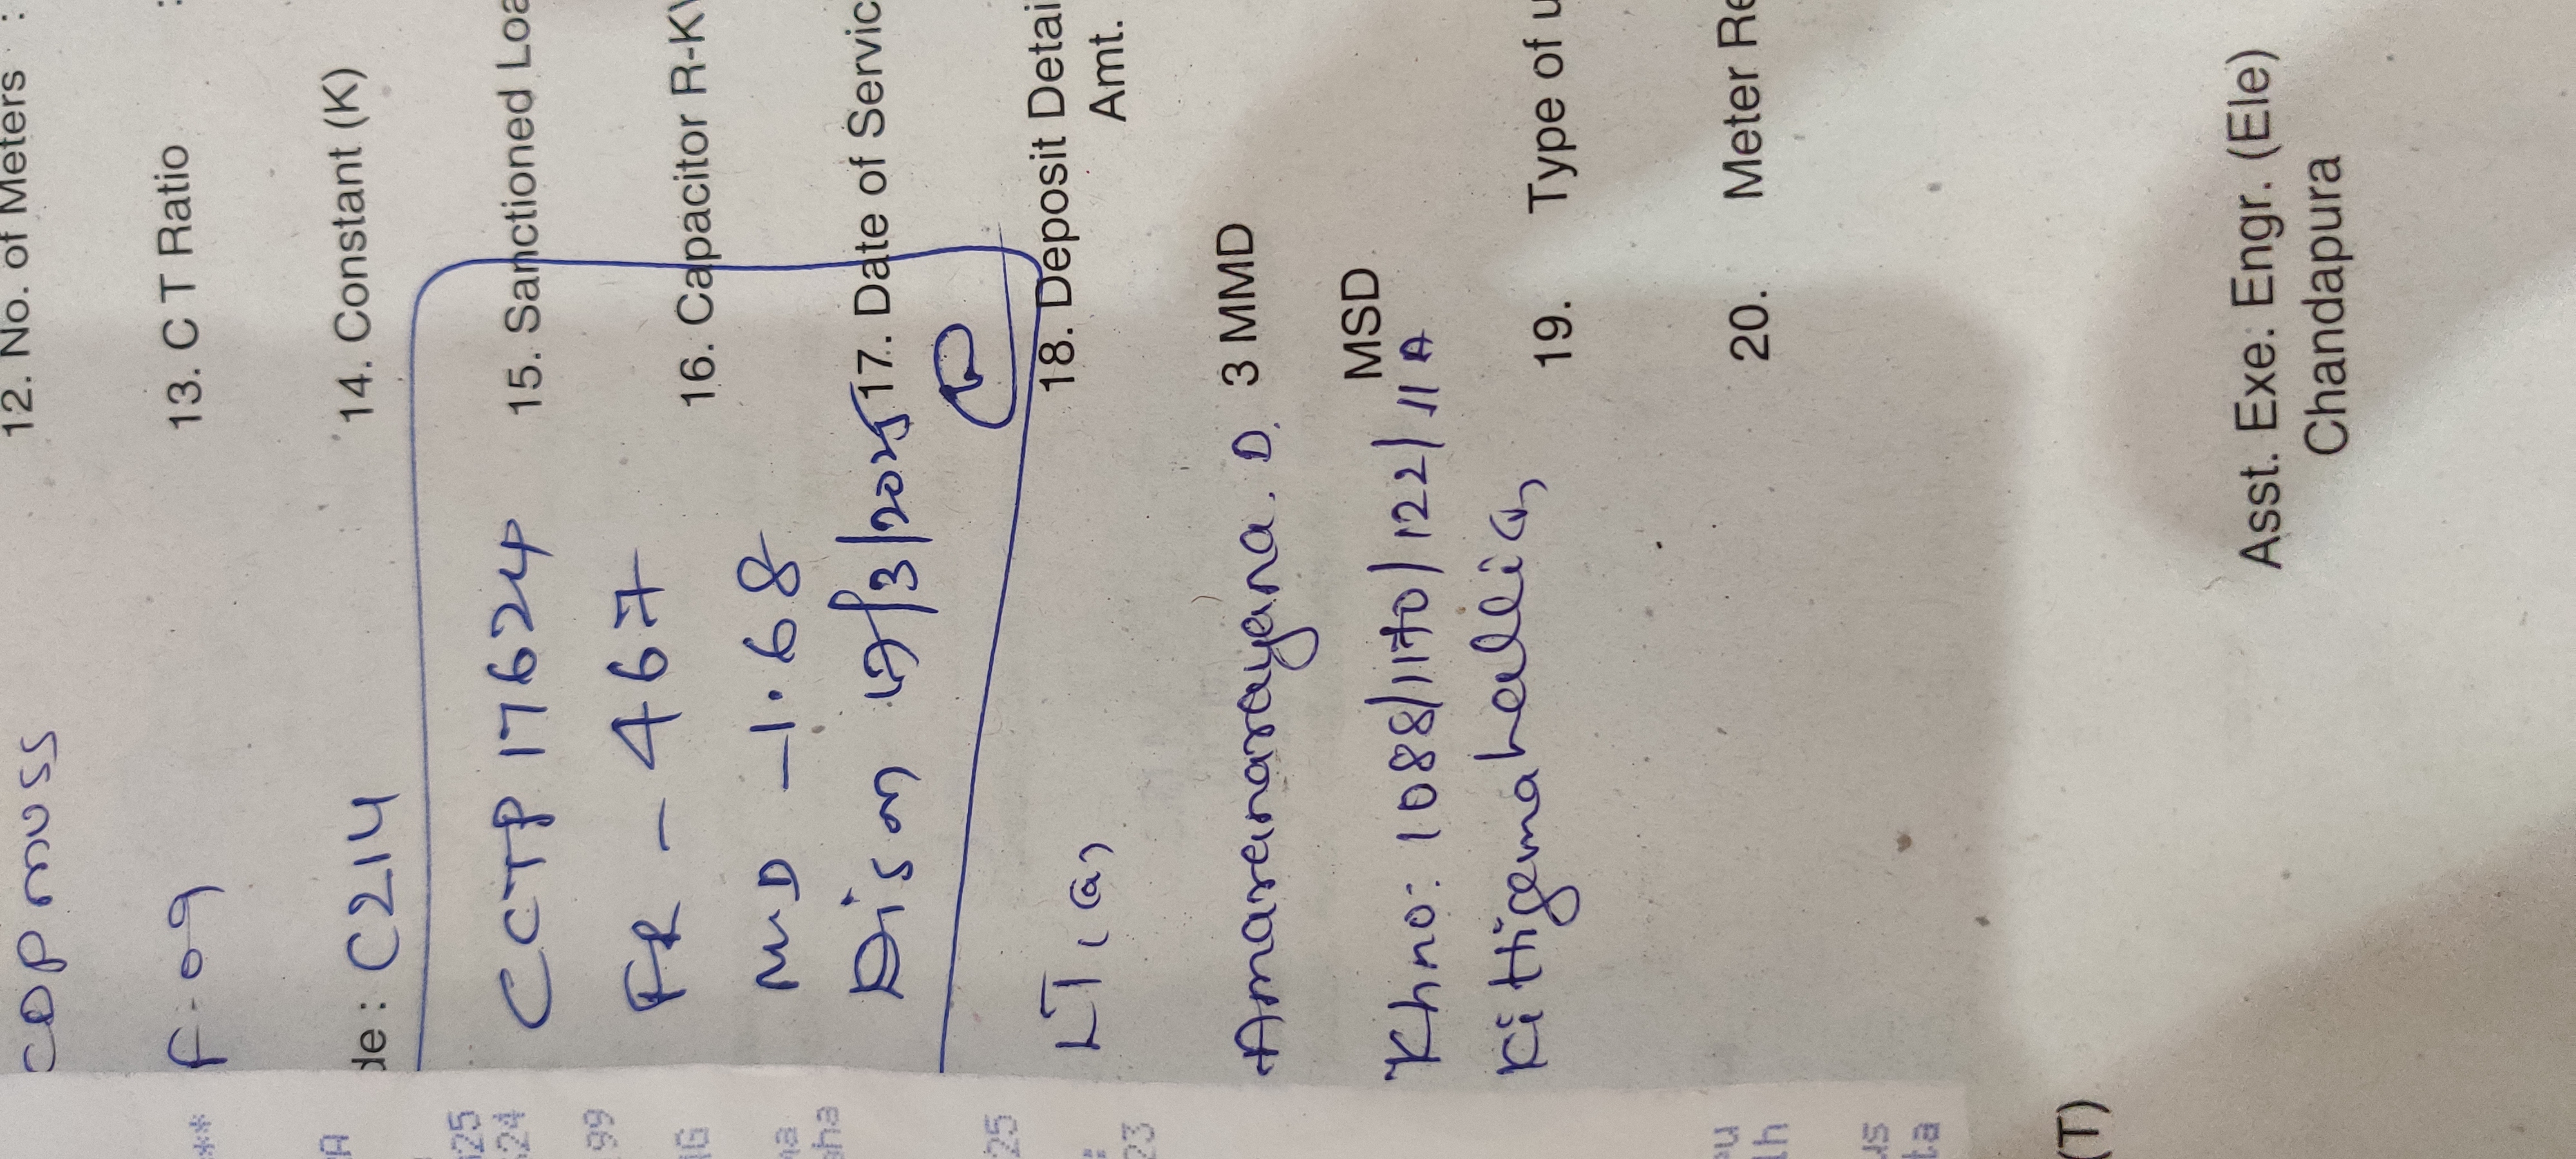 CDP MUSS
12. No. of Meters :
F-09
13. C T Ratio :
de : C214
14. Constant (K)
CCTP 17624
15. Sanctioned Loa
FR - 467
16. Capacitor R-K
MD - 1.68
Dis on /3/2025
17. Date of Servic
LT 1 (a)
18. Deposit Detai
Amt.
Amarenarayana. D.
3 MMD
MSD
Khno: 1088/1170/122/11A
Kittiganahalli
19. Type of u
20. Meter Re
Asst. Exe. Engr. (Ele)
Chandapura
(T)